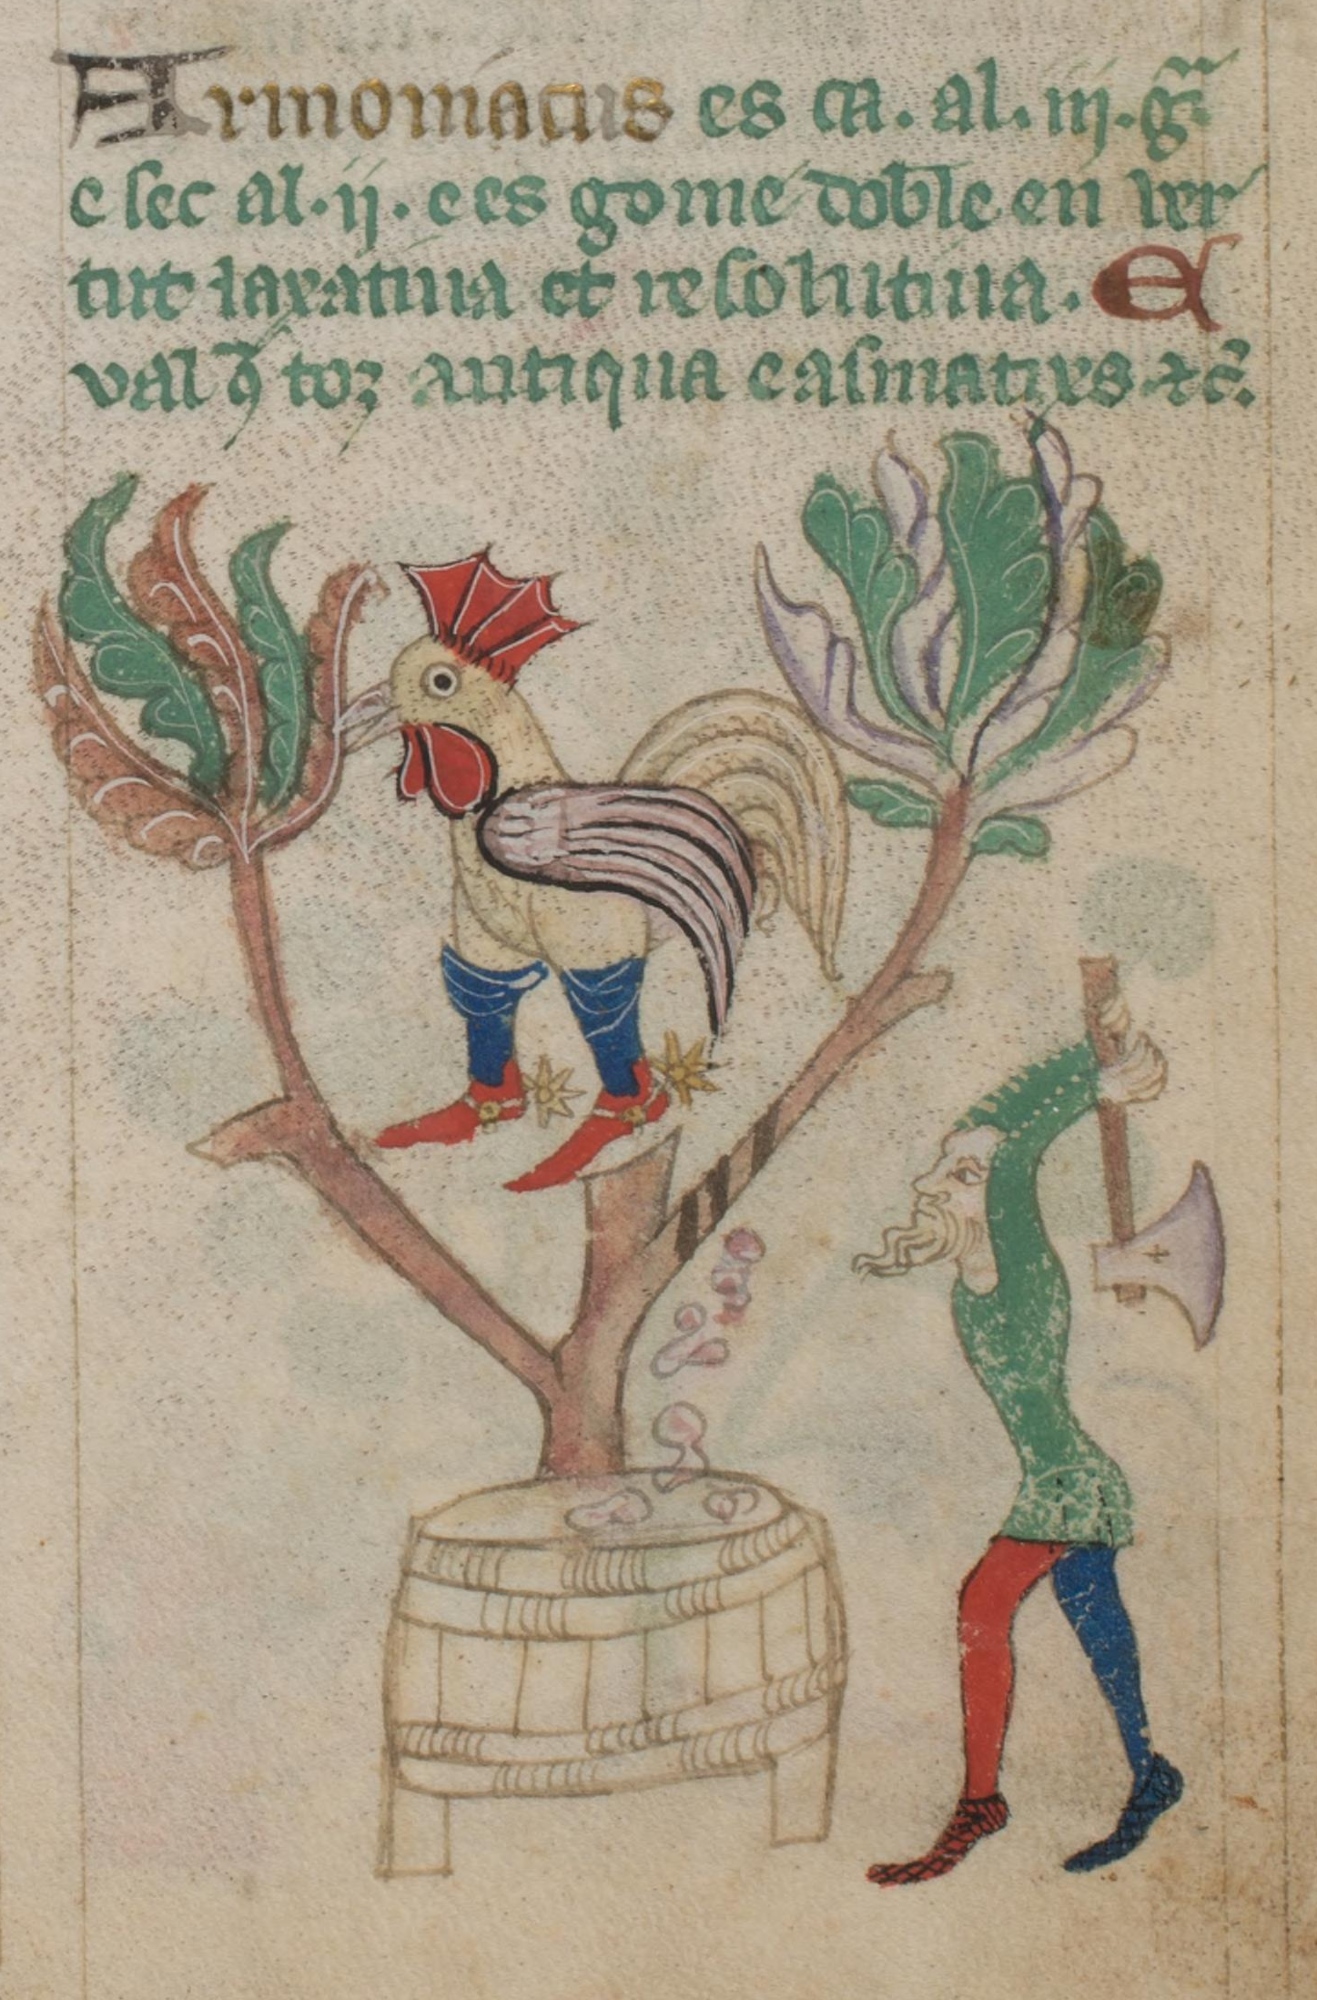 Armoniacus es ca. al. iij. g̃a
e sec al. ij. e es gome doble en ver
tut laxatiua et resolutiua. E
val q̃ toz antiqua e asmatixs ⁊ c̃.